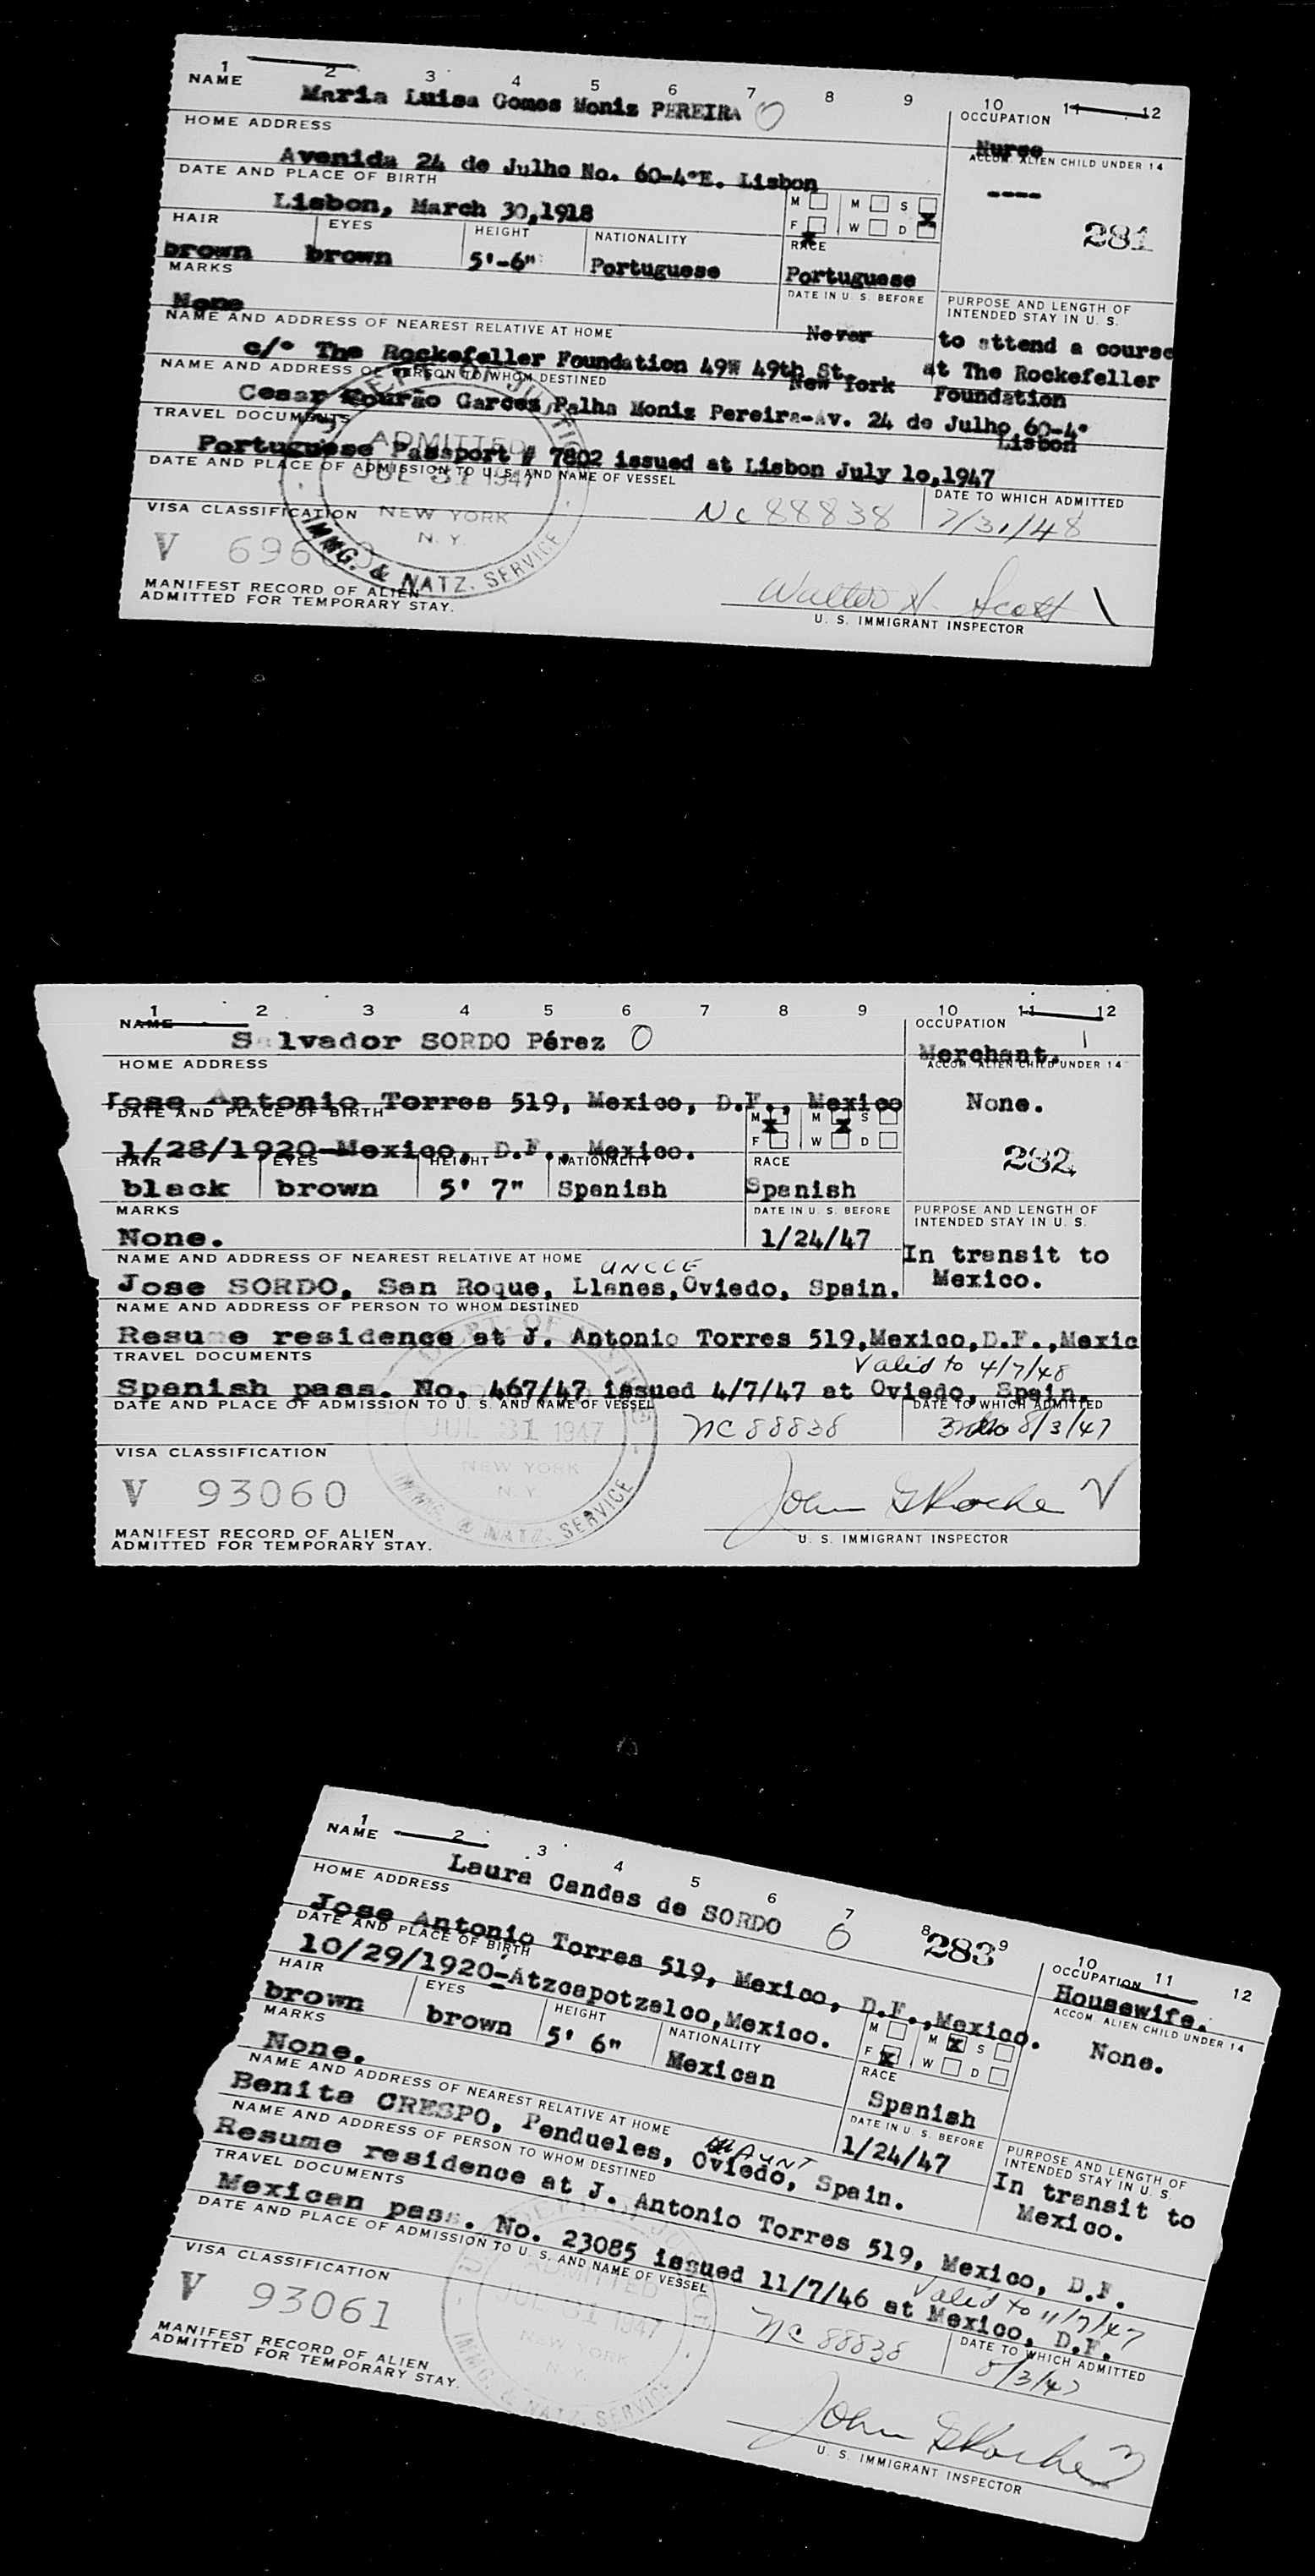 1 2 3 4 5 6 7 8 9 10 11 12
NAME OCCUPATION
Maria Luisa Gomes Moniz PEREIRA O Nurse
HOME ADDRESS ACCOM. ALIEN CHILD UNDER 14
Avenida 24 de Julho No. 60-4°E. Lisbon ----
DATE AND PLACE OF BIRTH M M S
Lisbon, March 30,1918 F W D X 281
HAIR EYES HEIGHT NATIONALITY RACE
brown brown 5'-6" Portuguese Portuguese
MARKS DATE IN U. S. BEFORE PURPOSE AND LENGTH OF
INTENDED STAY IN U. S.
None Never to attend a course
NAME AND ADDRESS OF NEAREST RELATIVE AT HOME
c/o The Rockefeller Foundation 49W 49th St. New York at The Rockefeller
NAME AND ADDRESS OF PERSON TO WHOM DESTINED Foundation
Cesar Mourão Garcez Palha Moniz Pereira-Av. 24 de Julho 60-4° Lisbon
TRAVEL DOCUMENTS
Portuguese Passport # 7802 issued at Lisbon July 10,1947
DATE AND PLACE OF ADMISSION TO U. S. AND NAME OF VESSEL DATE TO WHICH ADMITTED
ADMITTED
JUL 31 1947
NEW YORK
N. Y.
IMMG. & NATZ. SERVICE
NC 88838 7/31/48
VISA CLASSIFICATION
V
Walter H. Scott
MANIFEST RECORD OF ALIEN
ADMITTED FOR TEMPORARY STAY. U. S. IMMIGRANT INSPECTOR
1 2 3 4 5 6 7 8 9 10 11 12
NAME OCCUPATION
Salvador SORDO Pérez O Merchant.
HOME ADDRESS ACCOM. ALIEN CHILD UNDER 14
Jose Antonio Torres 519, Mexico, D.F., Mexico None.
DATE AND PLACE OF BIRTH M X M X S
1/28/1920-Mexico, D.F., Mexico. F W D 282
HAIR EYES HEIGHT NATIONALITY RACE
black brown 5' 7" Spanish Spanish
MARKS DATE IN U. S. BEFORE PURPOSE AND LENGTH OF
INTENDED STAY IN U. S.
None. 1/24/47 In transit to
NAME AND ADDRESS OF NEAREST RELATIVE AT HOME UNCLE Mexico.
Jose SORDO, San Roque, Llanes,Oviedo, Spain.
NAME AND ADDRESS OF PERSON TO WHOM DESTINED
Resume residence at J. Antonio Torres 519,Mexico,D.F.,Mexic
TRAVEL DOCUMENTS Valid to 4/7/48
Spanish pass. No. 467/47 issued 4/7/47 at Oviedo, Spain.
DATE AND PLACE OF ADMISSION TO U. S. AND NAME OF VESSEL DATE TO WHICH ADMITTED
JUL 31 1947
NEW YORK
N. Y.
IMMG. & NATZ. SERVICE
NC 88838 8/3/47
VISA CLASSIFICATION
V 93060
John Roche
MANIFEST RECORD OF ALIEN
ADMITTED FOR TEMPORARY STAY. U. S. IMMIGRANT INSPECTOR
1 2 3 4 5 6 7 8 9 10 11 12
NAME 283 OCCUPATION
Laura Candas de SORDO O Housewife.
HOME ADDRESS ACCOM. ALIEN CHILD UNDER 14
Jose Antonio Torres 519, Mexico, D.F.,Mexico. None.
DATE AND PLACE OF BIRTH M M X S
10/29/1920-Atzcapotzalco,Mexico. F X W D
HAIR EYES HEIGHT NATIONALITY RACE
brown brown 5' 6" Mexican Spanish
MARKS DATE IN U. S. BEFORE PURPOSE AND LENGTH OF
INTENDED STAY IN U. S.
None. 1/24/47 In transit to
NAME AND ADDRESS OF NEAREST RELATIVE AT HOME AUNT Mexico.
Benita CRESPO, Pendueles, Oviedo, Spain.
NAME AND ADDRESS OF PERSON TO WHOM DESTINED
Resume residence at J. Antonio Torres 519, Mexico, D.F.
TRAVEL DOCUMENTS Valid to 11/7/47
Mexican pass. No. 23085 issued 11/7/46 at Mexico, D.F.
DATE AND PLACE OF ADMISSION TO U. S. AND NAME OF VESSEL DATE TO WHICH ADMITTED
ADMITTED
JUL 31 1947
NEW YORK
N. Y.
IMMG. & NATZ. SERVICE
NC 88838 8/3/47
VISA CLASSIFICATION
V 93061
John Roche
MANIFEST RECORD OF ALIEN
ADMITTED FOR TEMPORARY STAY. U. S. IMMIGRANT INSPECTOR